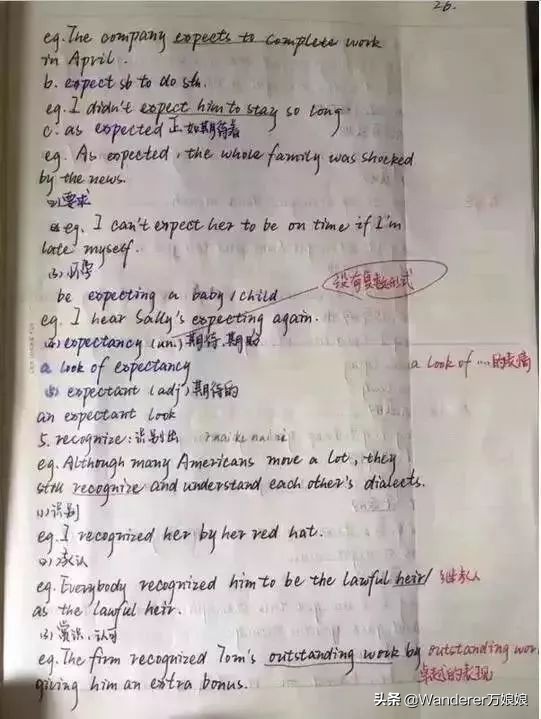 26.
eg. The company expects to complete work
in April.
b. expect sb to do sth.
eg. I didn't expect him to stay so long.
c. as expected 正如期待者
eg. As expected, the whole family was shocked
by the news.
(2) 要求
eg. I can't expect her to be on time if I'm
late myself.
(3) 怀孕
be expecting a baby/child
没有复数形式
eg. I hear Sally's expecting again.
(2) expectancy (un.) 期待, 期盼
a look of expectancy
a look of .... 的表情
(3) expectant (adj) 期待的
an expectant look
5. recognize: 识别出
eg. Although many Americans move a lot, they
still recognize and understand each other's dialects.
(1) 识别
eg. I recognized her by her red hat.
(2) 承认
eg. Everybody recognized him to be the lawful heir/ 继承人
as the lawful heir.
(3) 赏识, 认可
eg. The firm recognized Tom's outstanding work by outstanding wor
giving him an extra bonus. 卓越的表现
头条 @Wanderer万娘娘